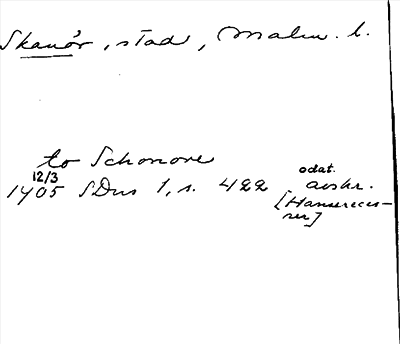 Skanör, stad, Malm. l.
to Schonore
12/3 odat.
1405 SDns 1, s. 422 avskr.
[Hanserecesser]